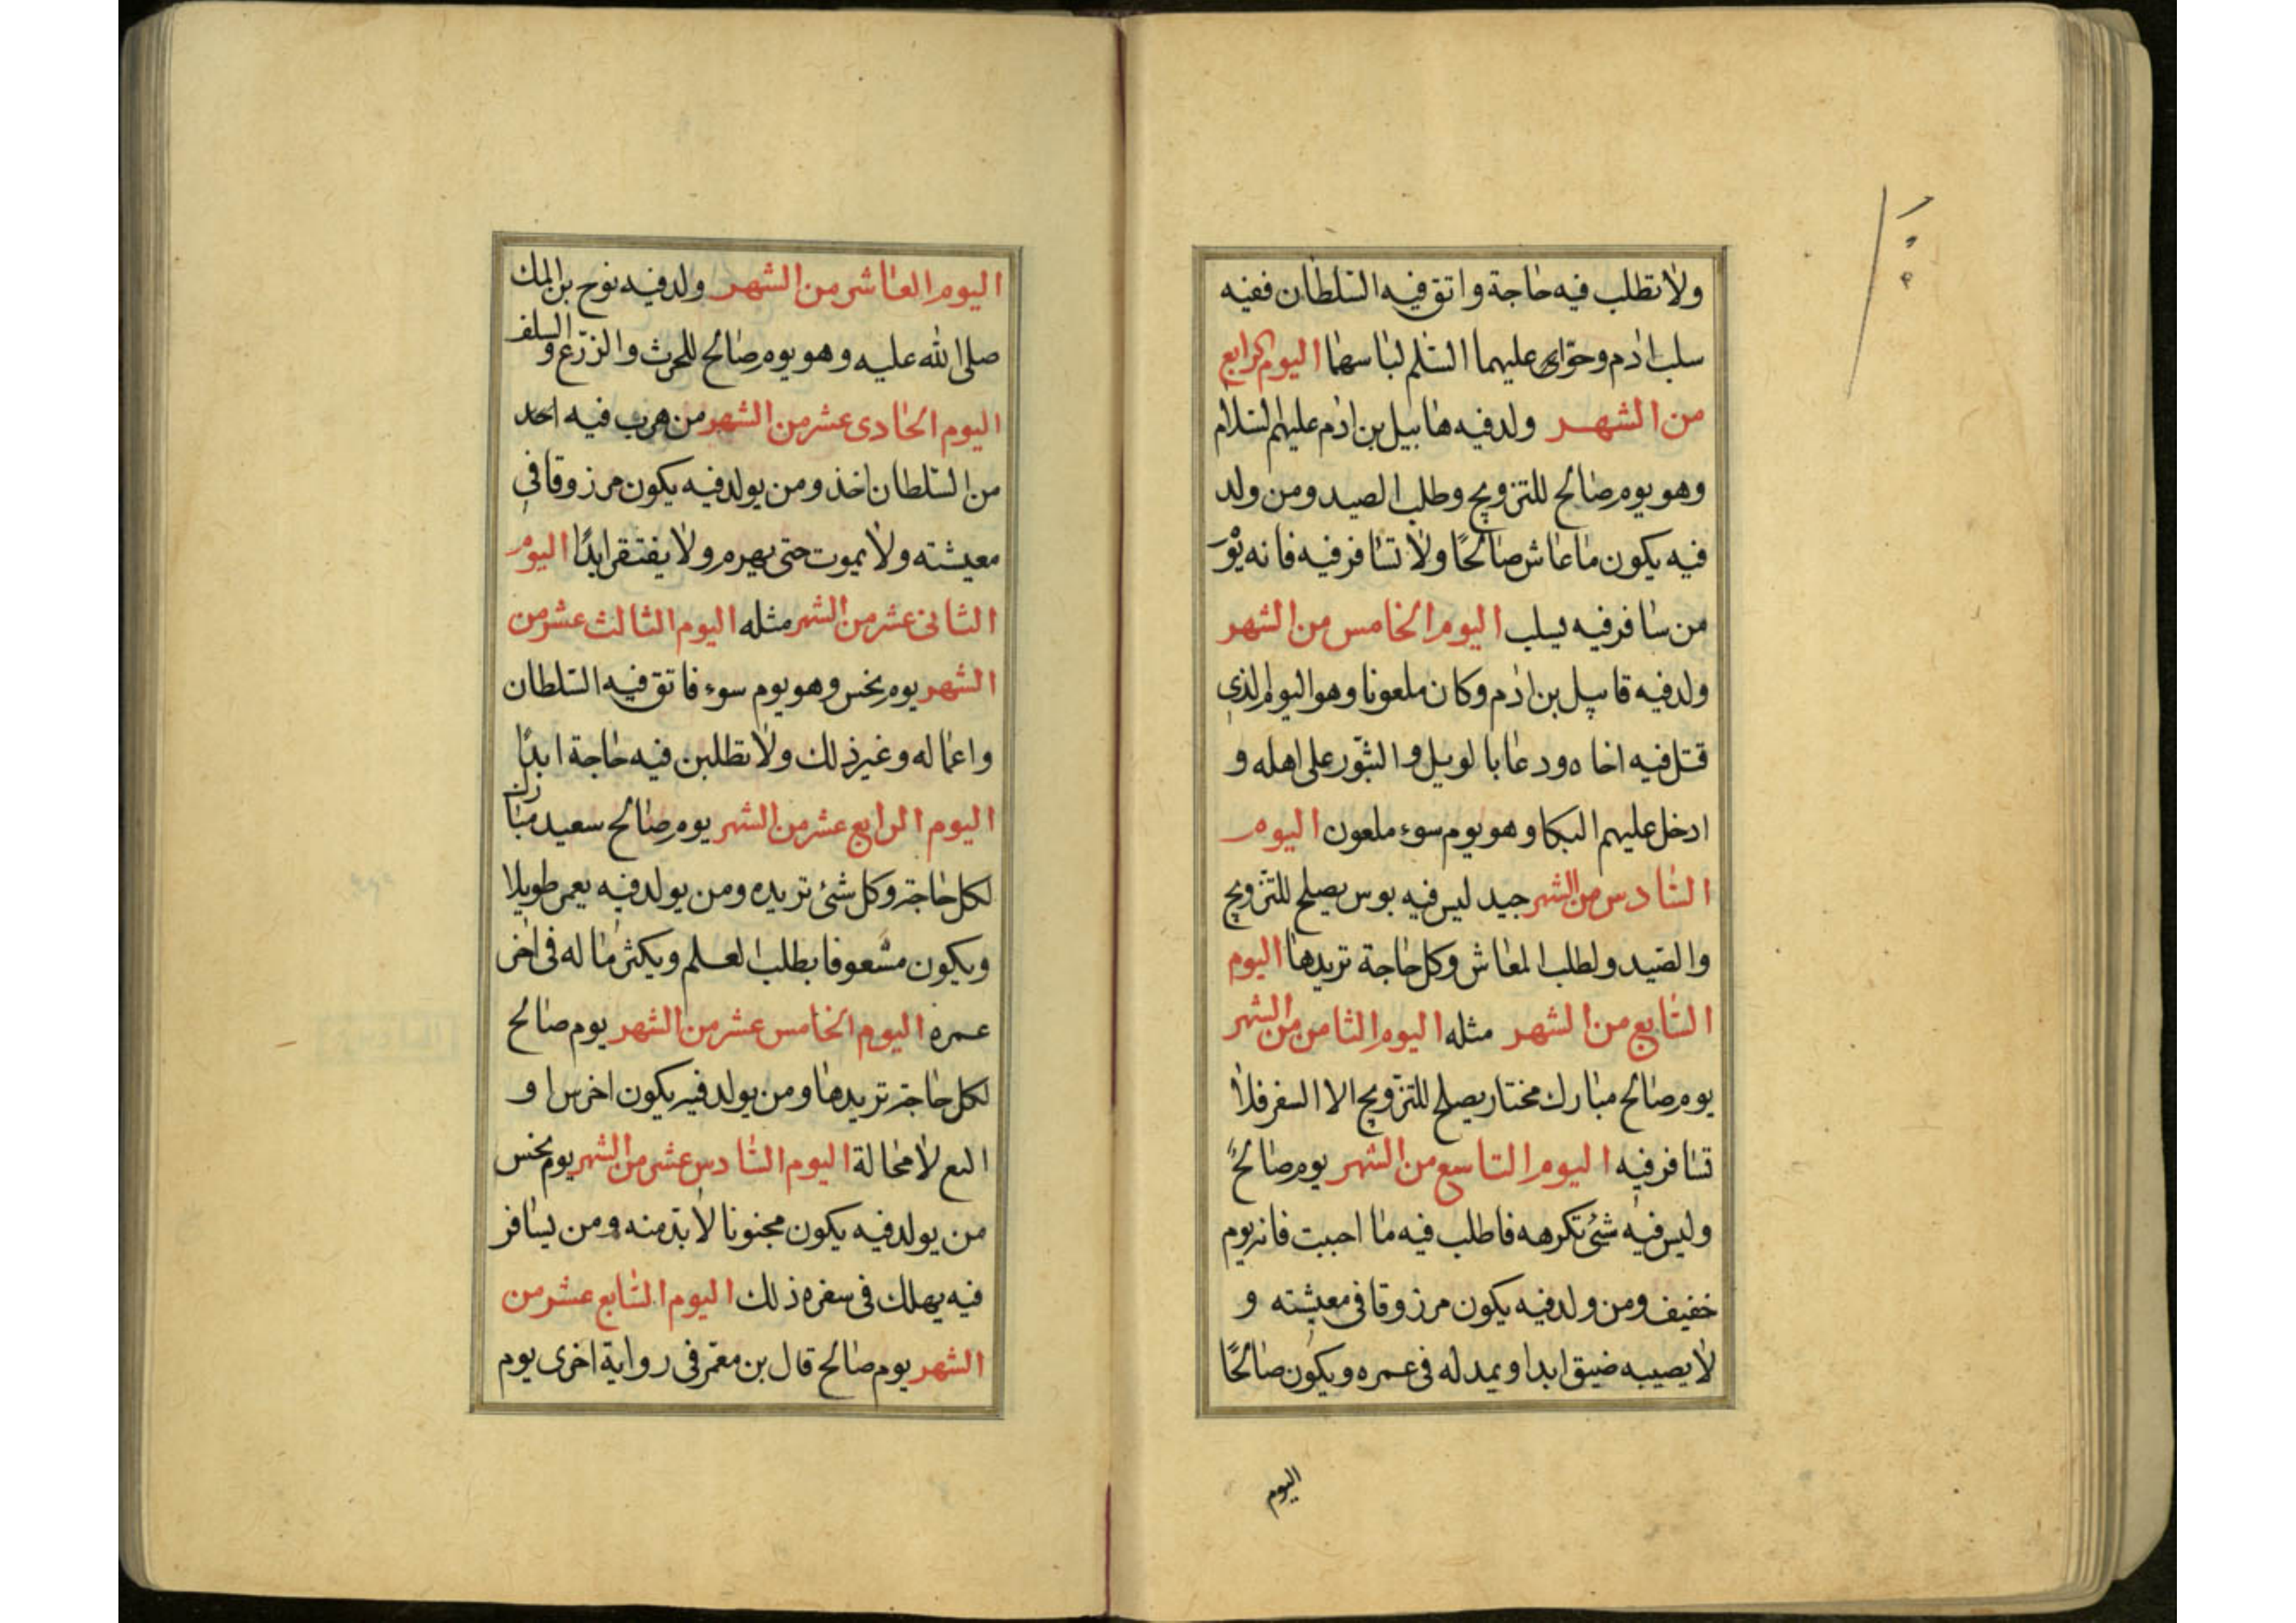 ولا تطلب فيه حاجة واتق فيه السلطان ففيه
سلب ادم وحوّاى عليهما السّلم لباسهما اليوم الرابع
من الشهر ولد فيه هابيل بن ادم عليهم السّلام
وهو يوم صالح للتزويج وطلب الصيد ومن ولد
فيه يكون ما عاش صالحًا ولا تسافر فيه فانه
من سافر فيه يسلب اليوم الخامس من الشهر
ولد فيه قابيل بن ادم وكان ملعونا وهو اليوم الذي
قتل فيه اخاه ودعا بالويل والثبّور على اهله و
ادخل عليهم البكا وهو يوم سوء ملعون اليوم
السّادس من الشهر جيد ليس فيه بوس يصلح للتّزويج
والصّيد ولطلب المعاش وكل حاجة تريدها اليوم
السّابع من الشهر مثله اليوم الثامن من الشهر
يوم صالح مبارك مختار يصلح للتزّويج الا السفر فلا
تسافر فيه اليوم التاسع من الشهر يوم صالحً
وليس فيه شئ تكرهه فاطلب فيه ما احببت فانه يوم
خفيف ومن ولد فيه يكون مرزوقا في معيشته و
لا يصيبه ضيق ابدا ويمد له في عمره ويكون صالحًا
اليوم
اليوم العاشر من الشهر ولد فيه نوح بن لمك
صلى الله عليه وهو يوم صالح للحرث والزرّع والسلف
اليوم الحادى عشر من الشهر من هرب فيه احد
من السّلطان اخذ ومن يولد فيه يكون مرزوقا في
معيشته ولا يموت حتى يهرم ولا يفتقر ابدًا اليوم
الثانى عشر من الشهر مثله اليوم الثالث عشر من
الشهر يوم نحس وهو يوم سوء فاتق فيه السّلطان
واعماله وغير ذلك ولا تطلبن فيه حاجة ابدًا
اليوم الرابع عشر من الشهر يوم صالح سعيد مبارك
لكل حاجة وكل شئ تريده ومن يولد فيه يعمر طويلا
ويكون مشعوفا بطلب العلم ويكثر ماله فى اخر
عمره اليوم الخامس عشر من الشهر يوم صالح
لكل حاجة تريدها ومن يولد فيه يكون اخرس او
لا محالة اليوم السّادس عشر من الشهر يوم نحس
من يولد فيه يكون مجنونا لا بدّ منه ومن يسافر
فيه يهلك فى سفره ذلك اليوم السّابع عشر من
الشهر يوم صالح قال بن معمّر فى رواية اخرى يوم